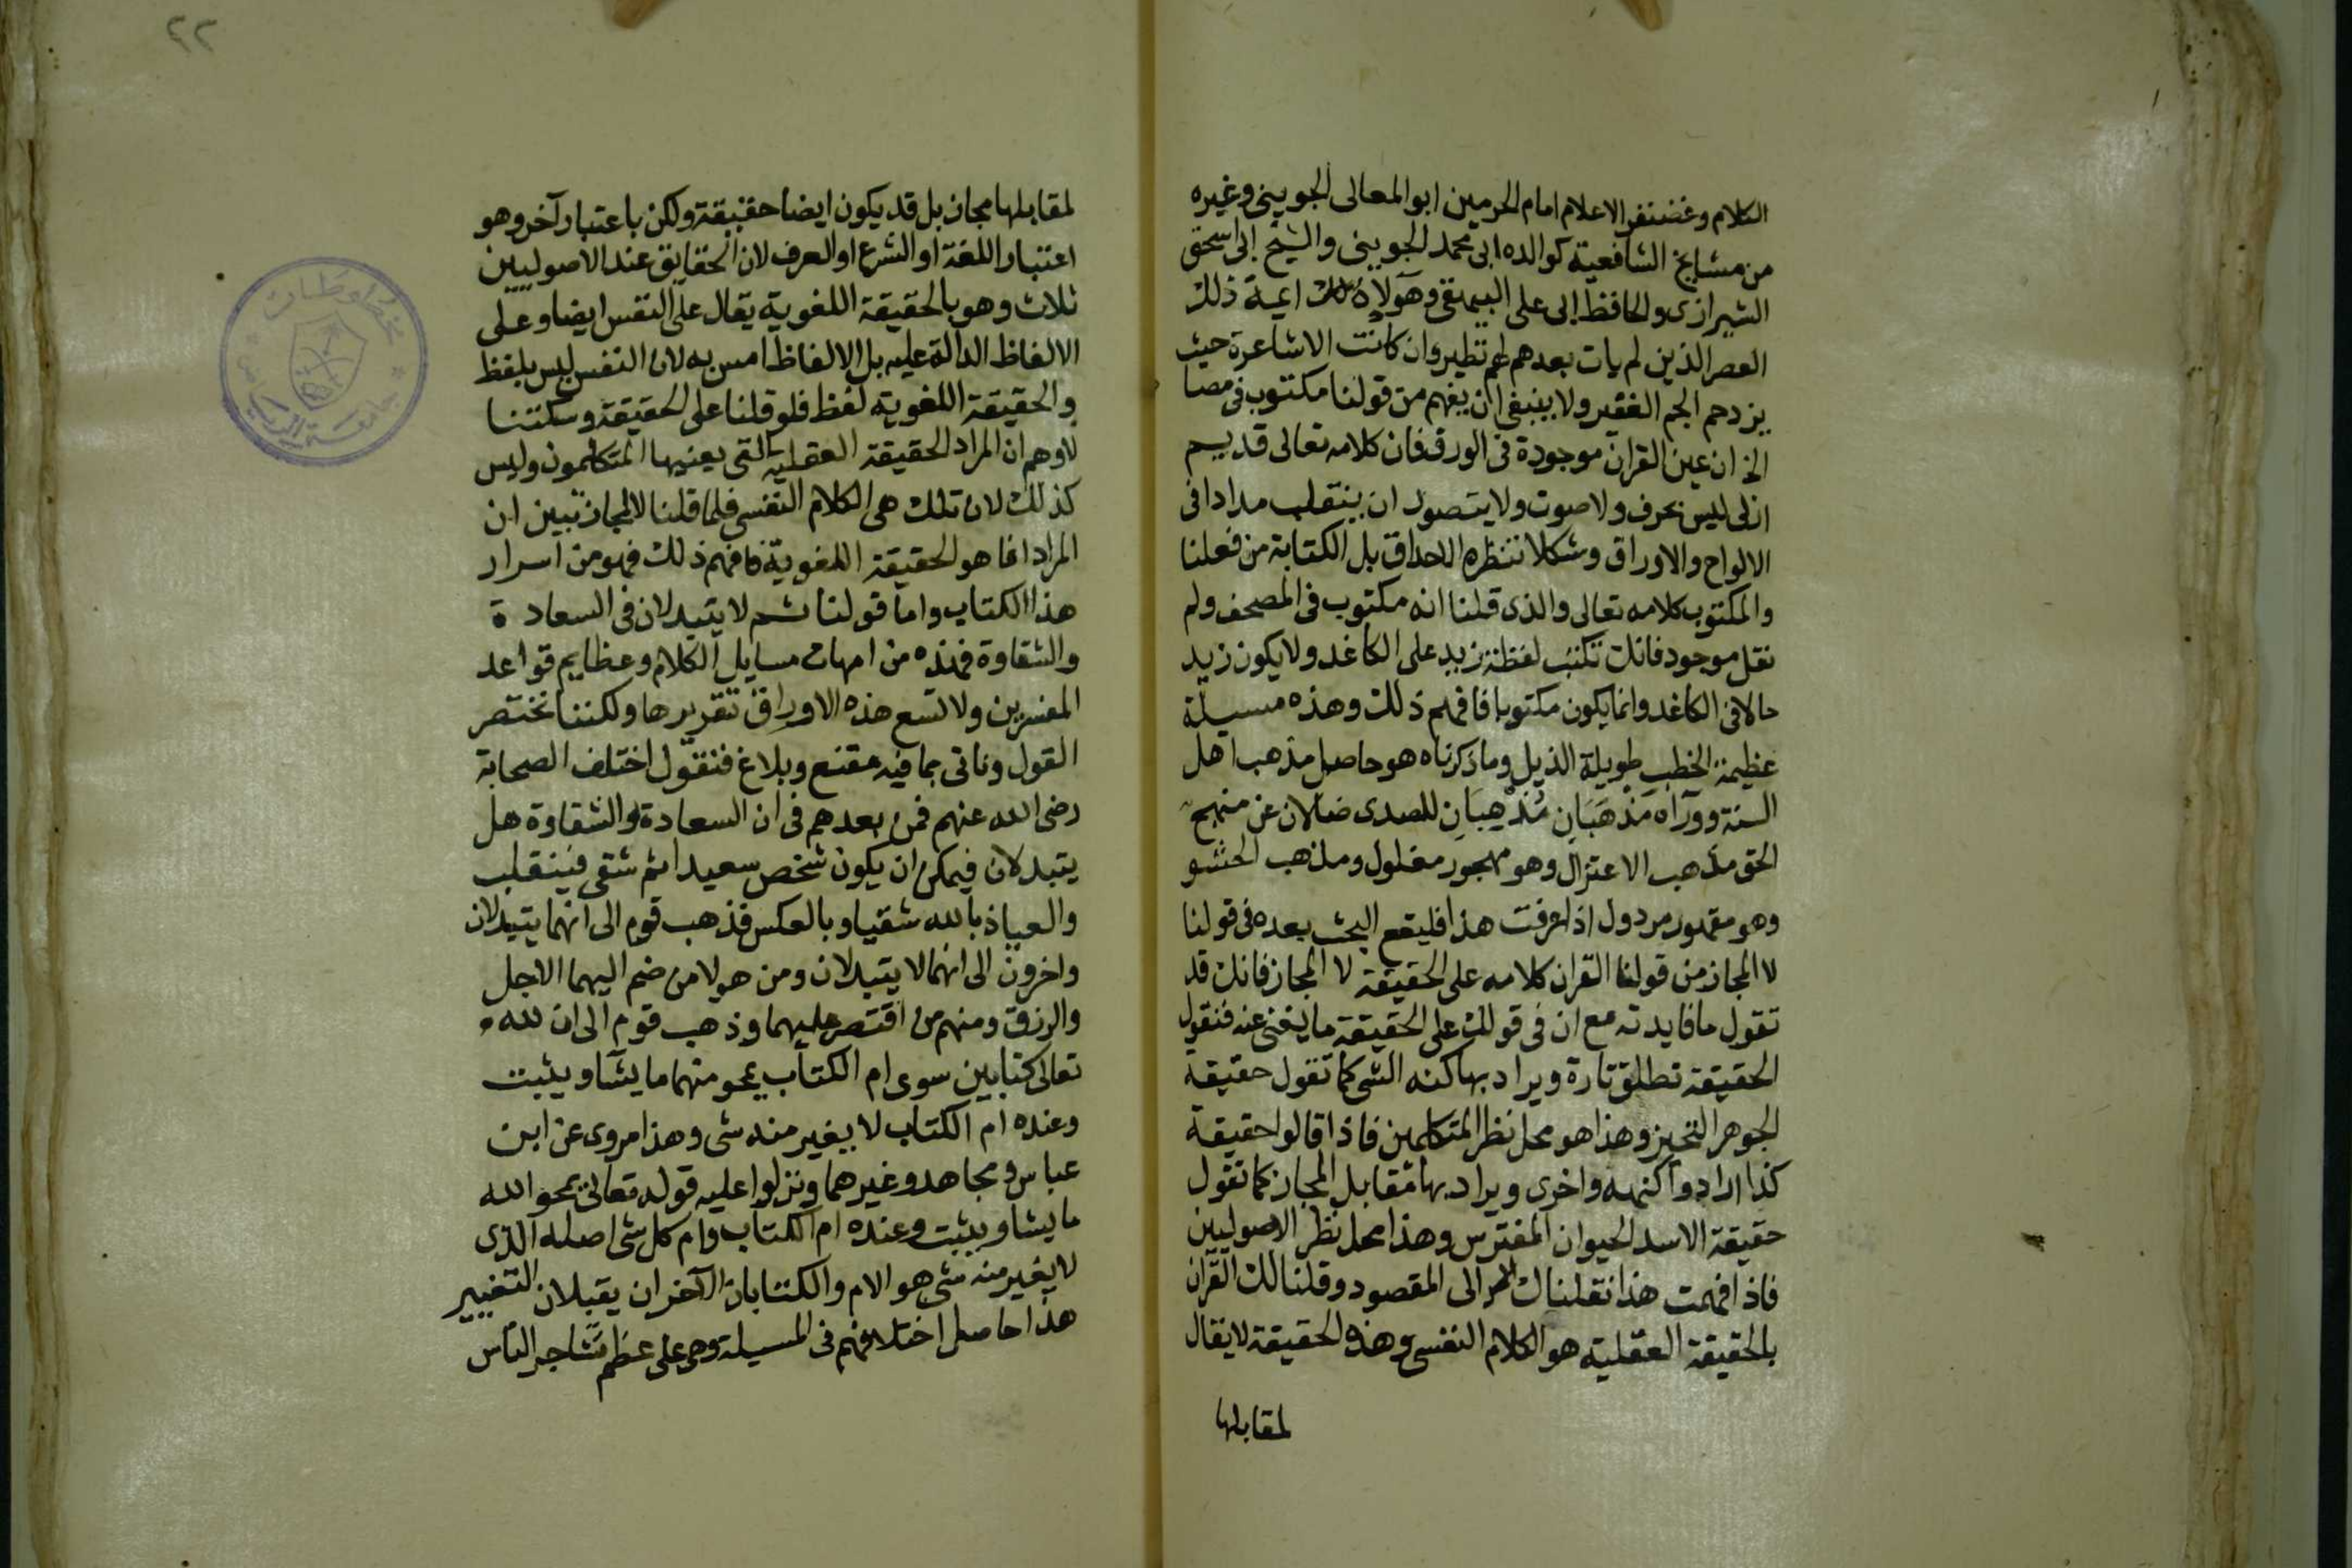 الكلام وغضنفر الاعلام امام الحرمين ابو المعالى الجوينى وغيره
من مشايخ الشافعية كوالده ابى محمد الجوينى والشيخ ابى اسحق
الشيرازى والحافظ ابى على البيهقى وهولاء ايمة ذلك
العصر الذين لم يات بعدهم لهم نظير وان كانت الاشاعرة حيث
يزدحم الجم الغفير ولا ينبغى ان يفهم من قولنا مكتوب فى مصا
الخ ان عين القران موجودة فى الورق فان كلامه تعالى قديم
ازلى ليس بحرف ولا صوت ولا يتصور ان ينقلب مدادا فى
الالواح والاوراق وشكلا تنظره الاحداق بل الكتابة من فعلنا
والمكتوب كلامه تعالى والذى قلنا انه مكتوب فى المصحف ولم
نقل موجود فانك تكتب لفظة زيد على الكاغد ولا يكون زيد
حالا فى الكاغد وانما يكون مكتوبا فافهم ذلك وهذه مسيلة
عظيمة الخطب طويلة الذيل وما ذكرناه هو حاصل مذهب اهل
السنة ووراه مَذْهَبَان مُذْهِبَانِ للصدى ضالان عن منهج
الحق مذهب الاعتزال وهو مهجور مغلول ومذهب الحشو
وهو مقهور مردول اذا عرفت هذا فليقع البحث بعده فى قولنا
لا المجاز من قولنا القران كلامه على الحقيقة لا المجاز فانك قد
تقول ما فايدته مع ان فى قولك على الحقيقة ما يغنى عنه فنقول
الحقيقة تطلق تارة ويراد بها كنه الشى كما تقول حقيقة
الجوهر التحيز وهذا هو محل نظر المتكلمين فاذا قالوا حقيقة
كذا ارادوا كنهه واخرى ويراد بها مقابل المجاز كما تقول
حقيقة الاسد الحيوان المفترس وهذا محل نظر الاصوليين
فاذا فهمت هذا نقلناك الى المقصود وقلنا لك القرآن
بالحقيقة العقلية هو الكلام النفسى وهذه الحقيقة لا يقال
لمقابلها
٢٢
لمقابلها مجاز بل قد يكون ايضا حقيقة ولكن باعتبار آخر وهو
اعتبار اللغة او الشرع او العرف لان الحقايق عند الاصوليين
ثلاث وهو بالحقيقة اللغوية يقال على النفس ايضا وعلى
الالفاظ الدالة عليه بل الالفاظ امس به لان النفس ليس بلفظ
والحقيقة اللغوية لفظ فلو قلنا على الحقيقة وسكتنا
لاوهم ان المراد الحقيقة العقلية التى يعنيها المتكلمون وليس
كذلك لان تلك هى الكلام النفسى فلما قلنا لا المجاز تبين ان
المراد انما هو الحقيقة اللغوية فافهم ذلك فهو من اسرار
هذا الكتاب واما قولنا ثم لا يتبدلان فى السعادة
والشقاوة فهذه من امهات مسايل الكلام وعظايم قواعد
المفسرين ولا تسع هذه الاوراق تقريرها ولكننا نختصر
القول وناتى بما فيه مقنع وبلاغ فنقول اختلف الصحابة
رضى الله عنهم فمن بعدهم فى ان السعادة والشقاوة هل
يتبدلان فيمكن ان يكون شخص سعيدا ثم شقى فينقلب
والعياذ بالله شقيا وبالعكس فذهب قوم الى انهما يتبدلان
واخرون الى انهما لا يتبدلان ومن هولا من ضم اليهما الاجل
والرزق ومنهم من اقتصر عليهما وذهب قوم الى ان لله
تعالى كتابين سوى ام الكتاب يمحو منهما ما يشآ ويثبت
وعنده ام الكتاب لا يغير منه شى وهذا مروى عن ابن
عباس ومجاهد وغيرهما ونزلوا عليه قوله تعالى يمحو الله
ما يشا ويثبت وعنده ام الكتاب وام كل شى اصله الذى
لا يغير منه شى هو الام والكتابان الآخران يقبلان التغيير
هذا حاصل اختلافهم فى المسيلة وهى على عظم تشاجر الناس
مخطوطات
جامعة الرياض